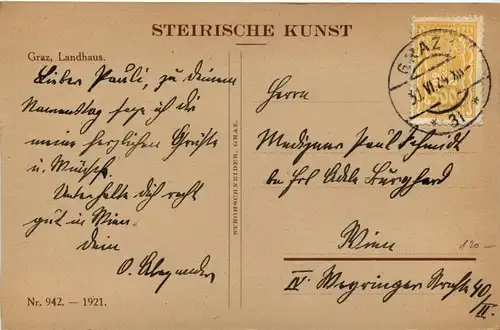 STEIRISCHE KUNST
Graz, Landhaus.
Lieber Pauli, zu deinem
Namenstag sage ich dir
meine herzlichen Grüße
u. Wünsche.
Unterhalte dich recht
gut in Wien.
dein
O. Alexander
Nr. 942. — 1921.
STROHSCHNEIDER, GRAZ.
GRAZ
30.VI.24
* 31 *
Herrn
Mediziner Paul Schmidt
bei Frl Adele Burghard
Wien
120-
IV. Weyringer Straße 40/II.